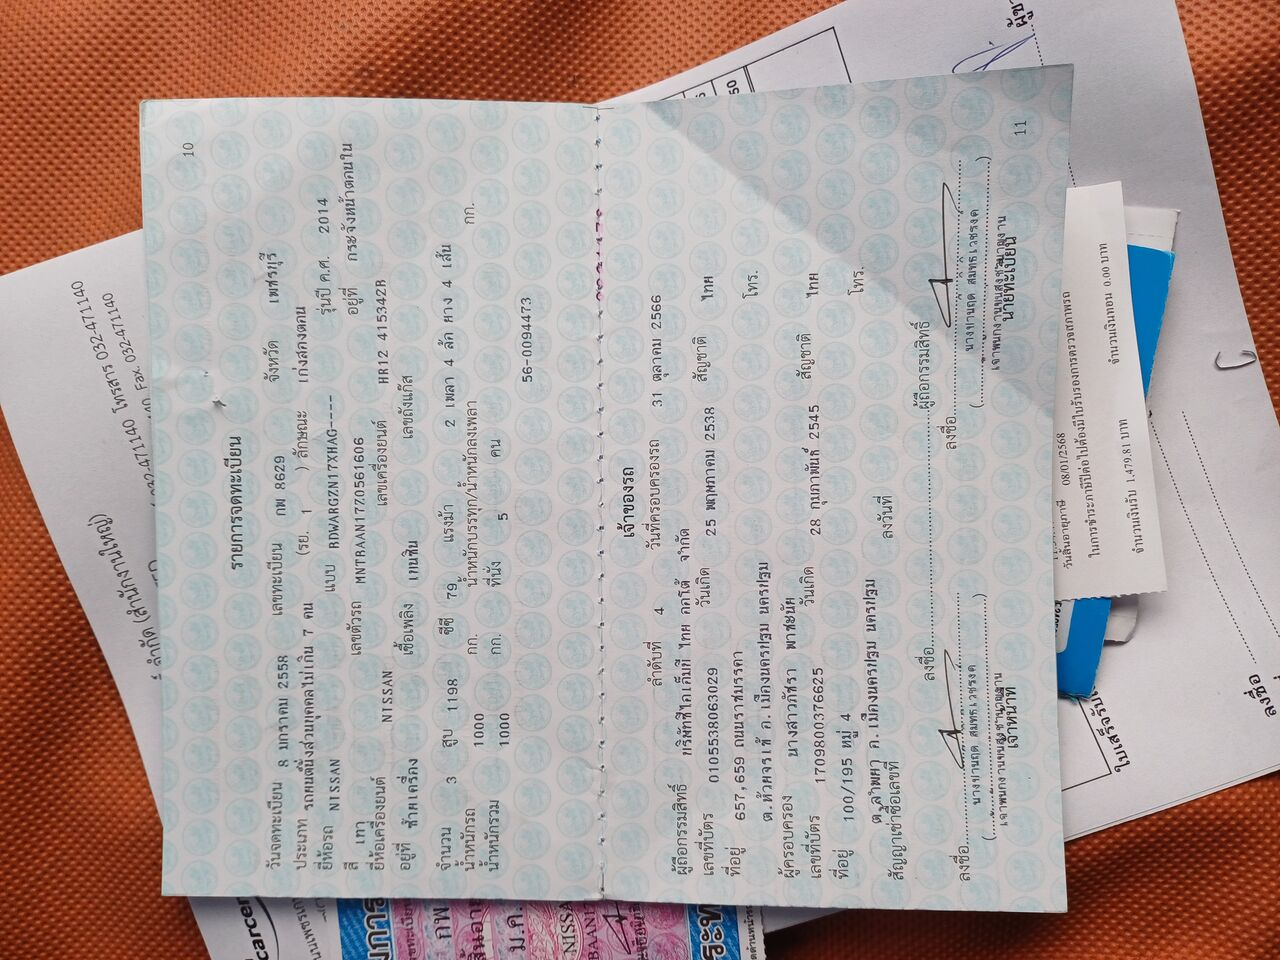 10
รายการจดทะเบียน
วันจดทะเบียน 8 มกราคม 2558 เลขทะเบียน กพ 8629 จังหวัด เพชรบุรี
ประเภท รถยนต์นั่งส่วนบุคคลไม่เกิน 7 คน (รย. 1 ) ลักษณะ เก๋งสองตอน
ยี่ห้อรถ NISSAN แบบ RDWARGZN17XHAG---- รุ่นปี ค.ศ. 2014
สี เทา เลขตัวรถ MNTBAAN17Z0561606 อยู่ที่ กระจังหน้าตอนใน
ยี่ห้อเครื่องยนต์ NISSAN เลขเครื่องยนต์ HR12 415342B
อยู่ที่ ท้ายเครื่อง เชื้อเพลิง เบนซิน เลขถังแก๊ส
จำนวน 3 สูบ 1198 ซีซี 79 แรงม้า 2 เพลา 4 ล้อ ยาง 4 เส้น
น้ำหนักรถ 1000 กก. น้ำหนักบรรทุก/น้ำหนักลงเพลา กก.
น้ำหนักรวม 1000 กก. ที่นั่ง 5 คน
56-0094473
เจ้าของรถ
ลำดับที่ 4 วันที่ครอบครองรถ 31 ตุลาคม 2566
ผู้ถือกรรมสิทธิ์ บริษัทซีไคเอ็มที ไทย ออโต้ จำกัด
เลขที่บัตร 0105538063029 วันเกิด 25 พฤษภาคม 2538 สัญชาติ ไทย
ที่อยู่ 657,659 ถนนราชมรรคา โทร.
ต.ห้วยจรเข้ อ.เมืองนครปฐม นครปฐม
ผู้ครอบครอง นางสาวภัชรา พาชะนัย
เลขที่บัตร 1709800376625 วันเกิด 28 กุมภาพันธ์ 2545 สัญชาติ ไทย
ที่อยู่ 100/195 หมู่ 4 โทร.
ต.ลำพยา อ.เมืองนครปฐม นครปฐม
สัญญาเช่าซื้อเลขที่ ลงวันที่
ลงชื่อ ผู้ถือกรรมสิทธิ์
ลงชื่อ ลงชื่อ
เจ้าพนักงานขนส่งชำนาญงาน เจ้าพนักงานขนส่งชำนาญงาน
เจ้าหน้าที่ นายทะเบียน
11
วันสิ้นอายุภาษี 08/01/2568
ในการชำระภาษีปีต่อไปต้องมีใบรับรองการตรวจสภาพรถ
จำนวนเงินรับ 1,479.81 บาท จำนวนเงินทอน 0.00 บาท
จำกัด (สำนักงานใหญ่)
032-471140 โทรสาร 032-471140
Fax. 032-471140
carcen
กพ
ม.ค.
NISSA
BAANI
ลงชื่อ
50